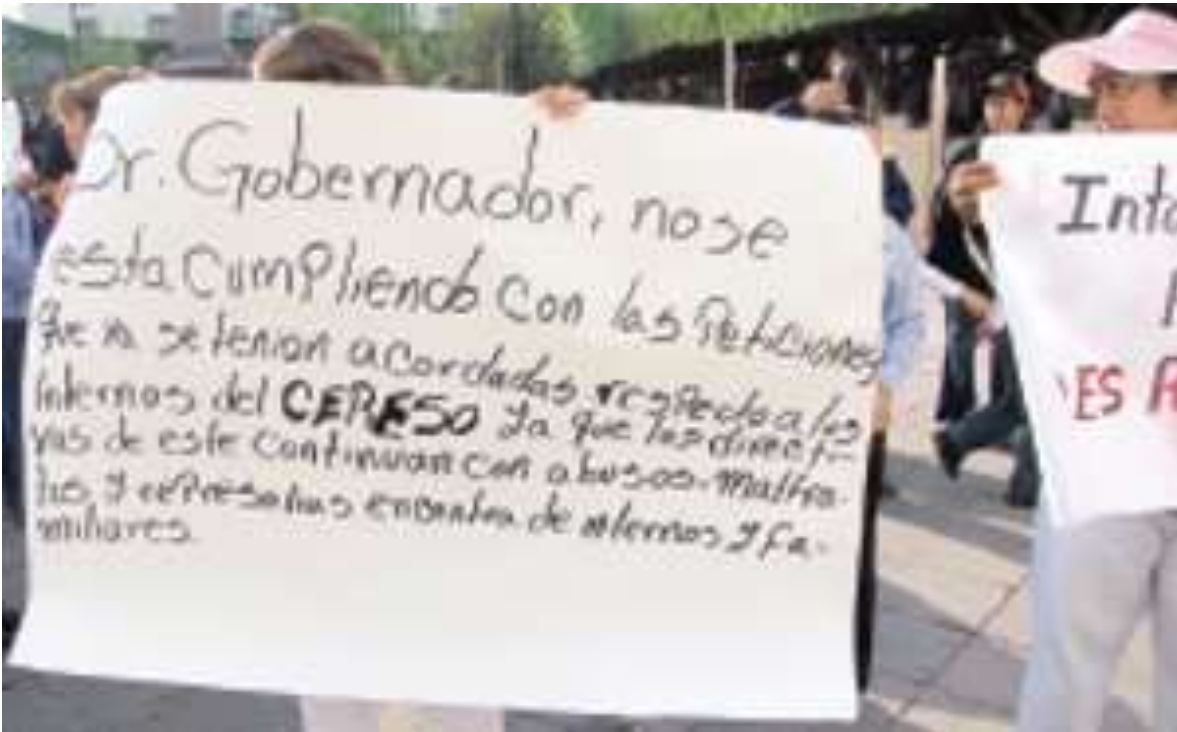 Sr. Gobernador, no se
esta Cumpliendo Con las Peticiones
que ya se tenian acordadas respecto a los
internos del CERESO ya que los directi-
vos de este continuan con abusos-maltra-
tos y represalias encontra de internos y fa-
miliares.
Into
ES A